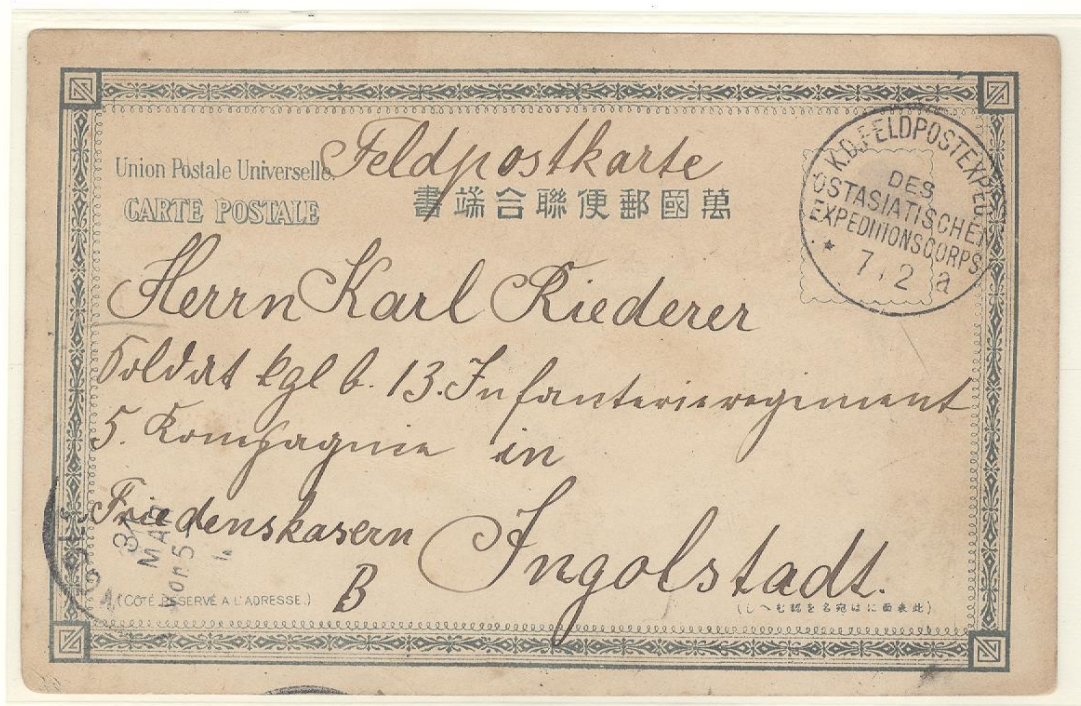 Feldpostkarte
Union Postale Universelle.
CARTE POSTALE
書端合聯便郵國萬
K.D. FELDPOSTEXPED.
DES
OSTASIATISCHEN
EXPEDITIONSCORPS
* 7/2 a
Herrn Karl Riederer
Soldat kgl b. 13. Infanterieregiment
5. Kompagnie in
Friedenskasern Ingolstadt.
B
MAR
Vor 5
(CÔTÉ RÉSERVÉ A L'ADRESSE.)
(しへむ認を名宛はに面表此)